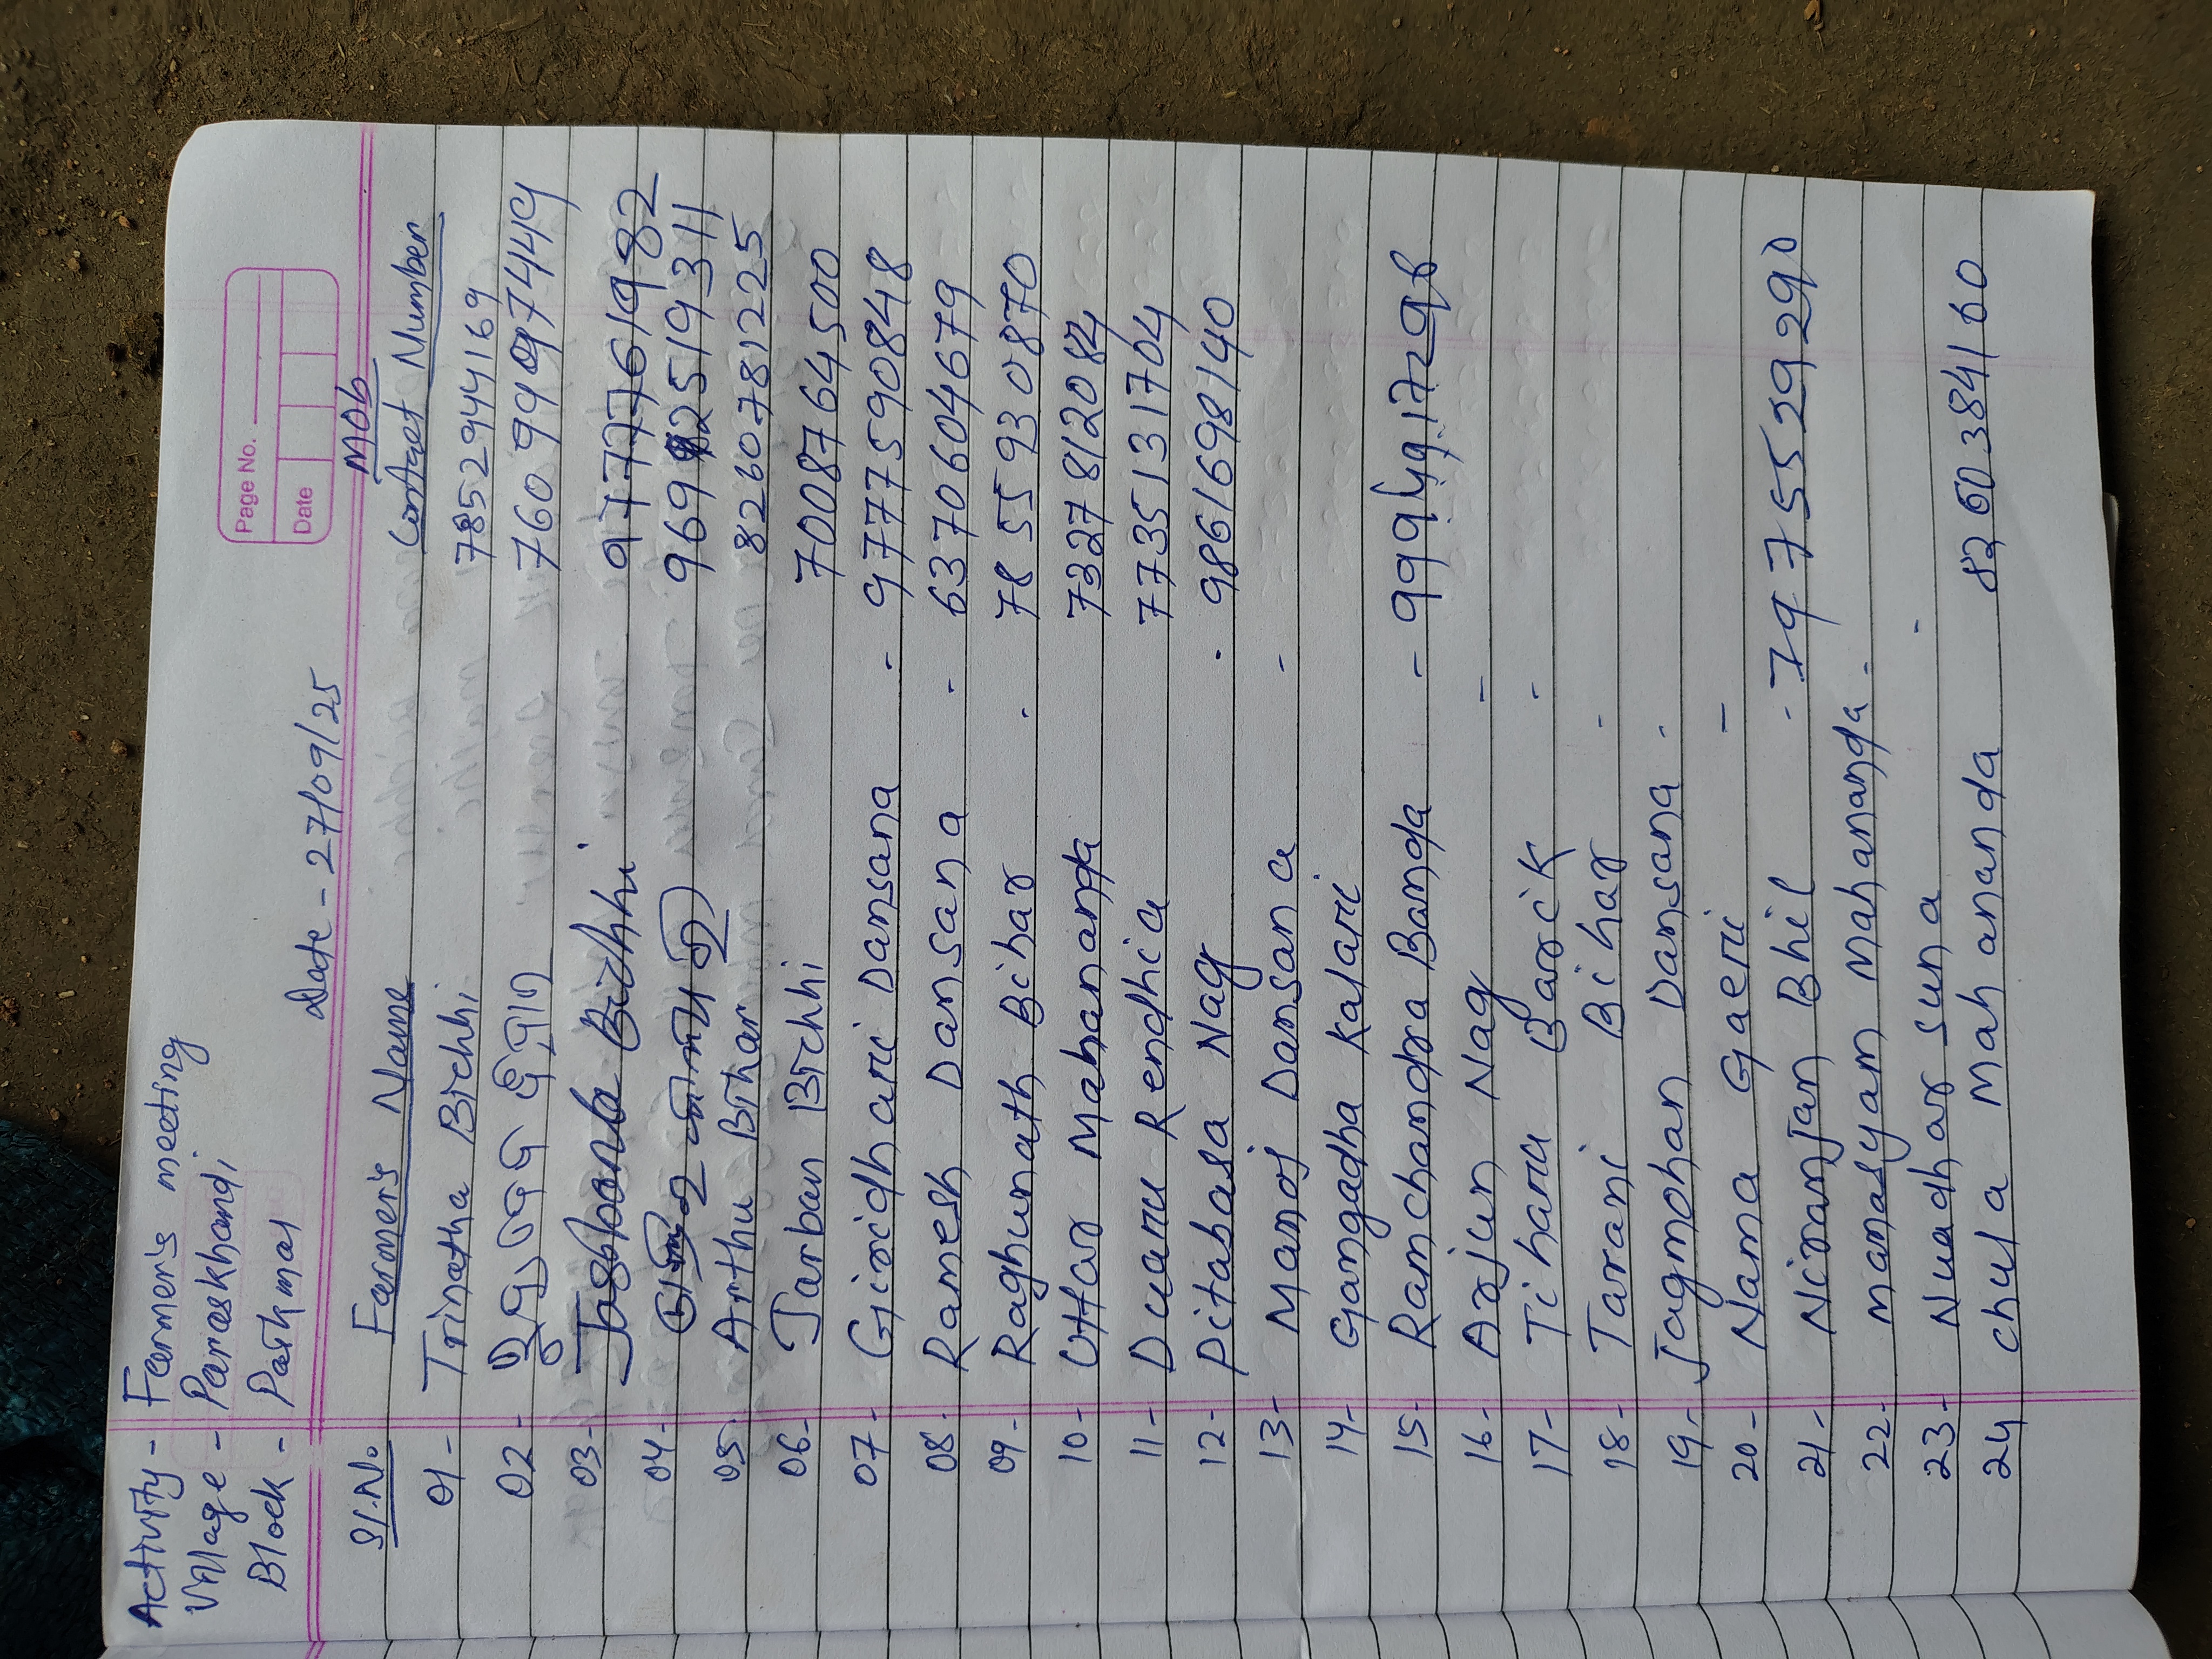 Page No.
Date
Activity - Farmer's meeting
Village - Paraskhandi
Block - Patkmal
Date - 27/09/25
Mob
Sl.No. Farmer's Name Contact Number
01- Trinatha Bichhi 7852944169
02-
03- Bichhi 9777761982
04-
05- Arthu Bihar 8260781225
06- Jarban Bichhi 7008764500
07- Giridhari Dansana - 9777590848
08- Ramesh Dansana - 6370604679
09- Raghunath Bihar - 7855930870
10- Uttar Mahananda 7327812084
11- Duaru Rendhia 7735131704
12- Pitabasa Nag - 9861698140
13- Manoj Dansana -
14- Gangadha Kalari
15- Ramchandra Banda -
16- Arjun Nag -
17- Tiharu Barik -
18- Tarani Bihar -
19- Jagmohan Dansana -
20- Nama Gaeri -
21- Niranjan Bhil - 7975529290
22- manasyam Mahananda -
23- Nuadhar suna -
24 chula Mahananda 8260384160